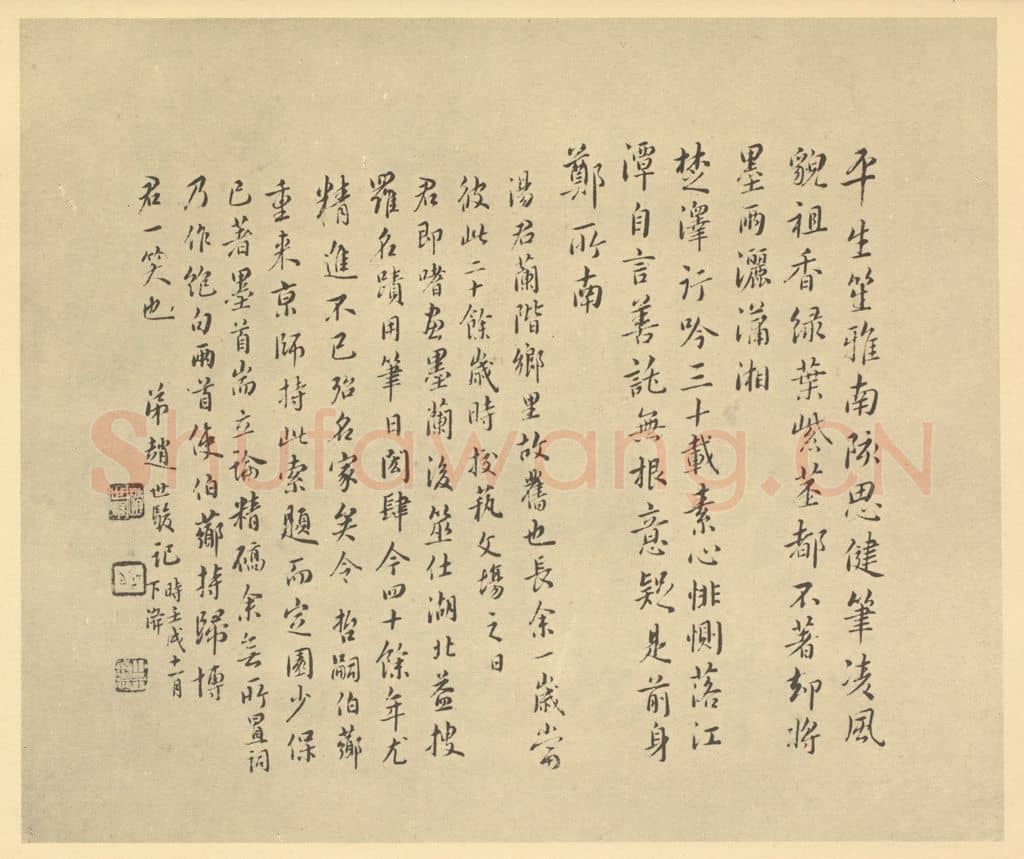 平生笙雅南陔思健筆凌風
貌祖香緑葉紫莖都不著却將
墨雨灑瀟湘
楚澤行吟三十載素心悱惻落江
潭自言善託無根意疑是前身
鄭所南
湯君蘭階鄉里故舊也長余一歲當
彼此二十餘歲時校藝文場之日
君即嗜畫墨蘭後筮仕湖北益搜
羅名蹟用筆日閎肆今四十餘年尤
精進不已殆名家矣今哲嗣伯薌
重来京師持此索題而定園少保
已著墨首耑立論精確余無所置詞
乃作絶句兩首使伯薌持歸博
君一笑也
弟趙世駿記
時壬戌十一月
下澣
Shufawang.CN